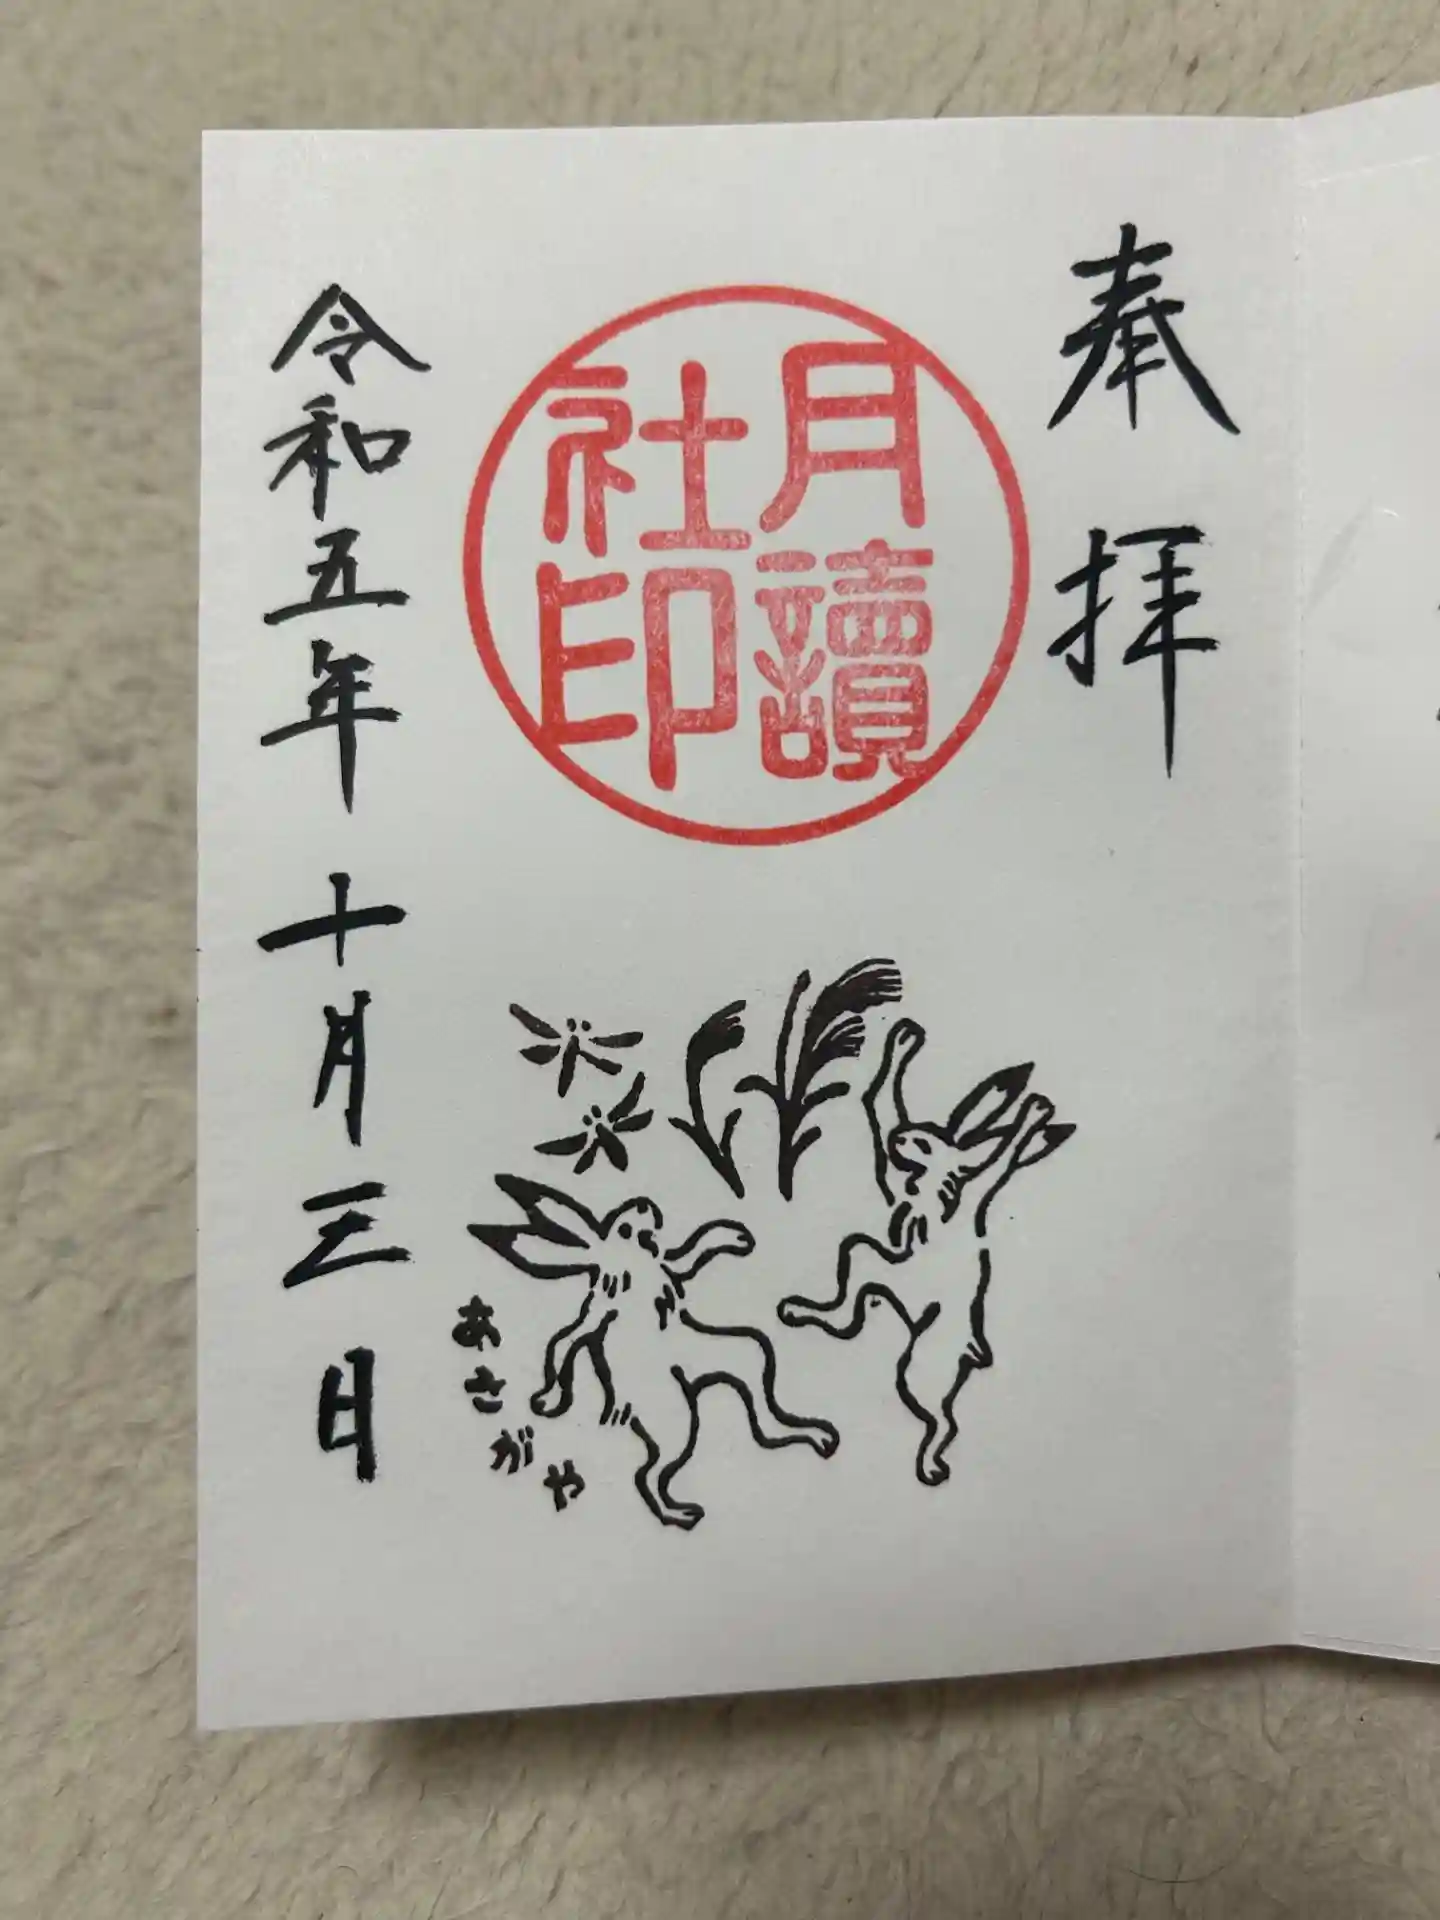 奉拝
月讀
社印
あさがや
令和五年十月三日